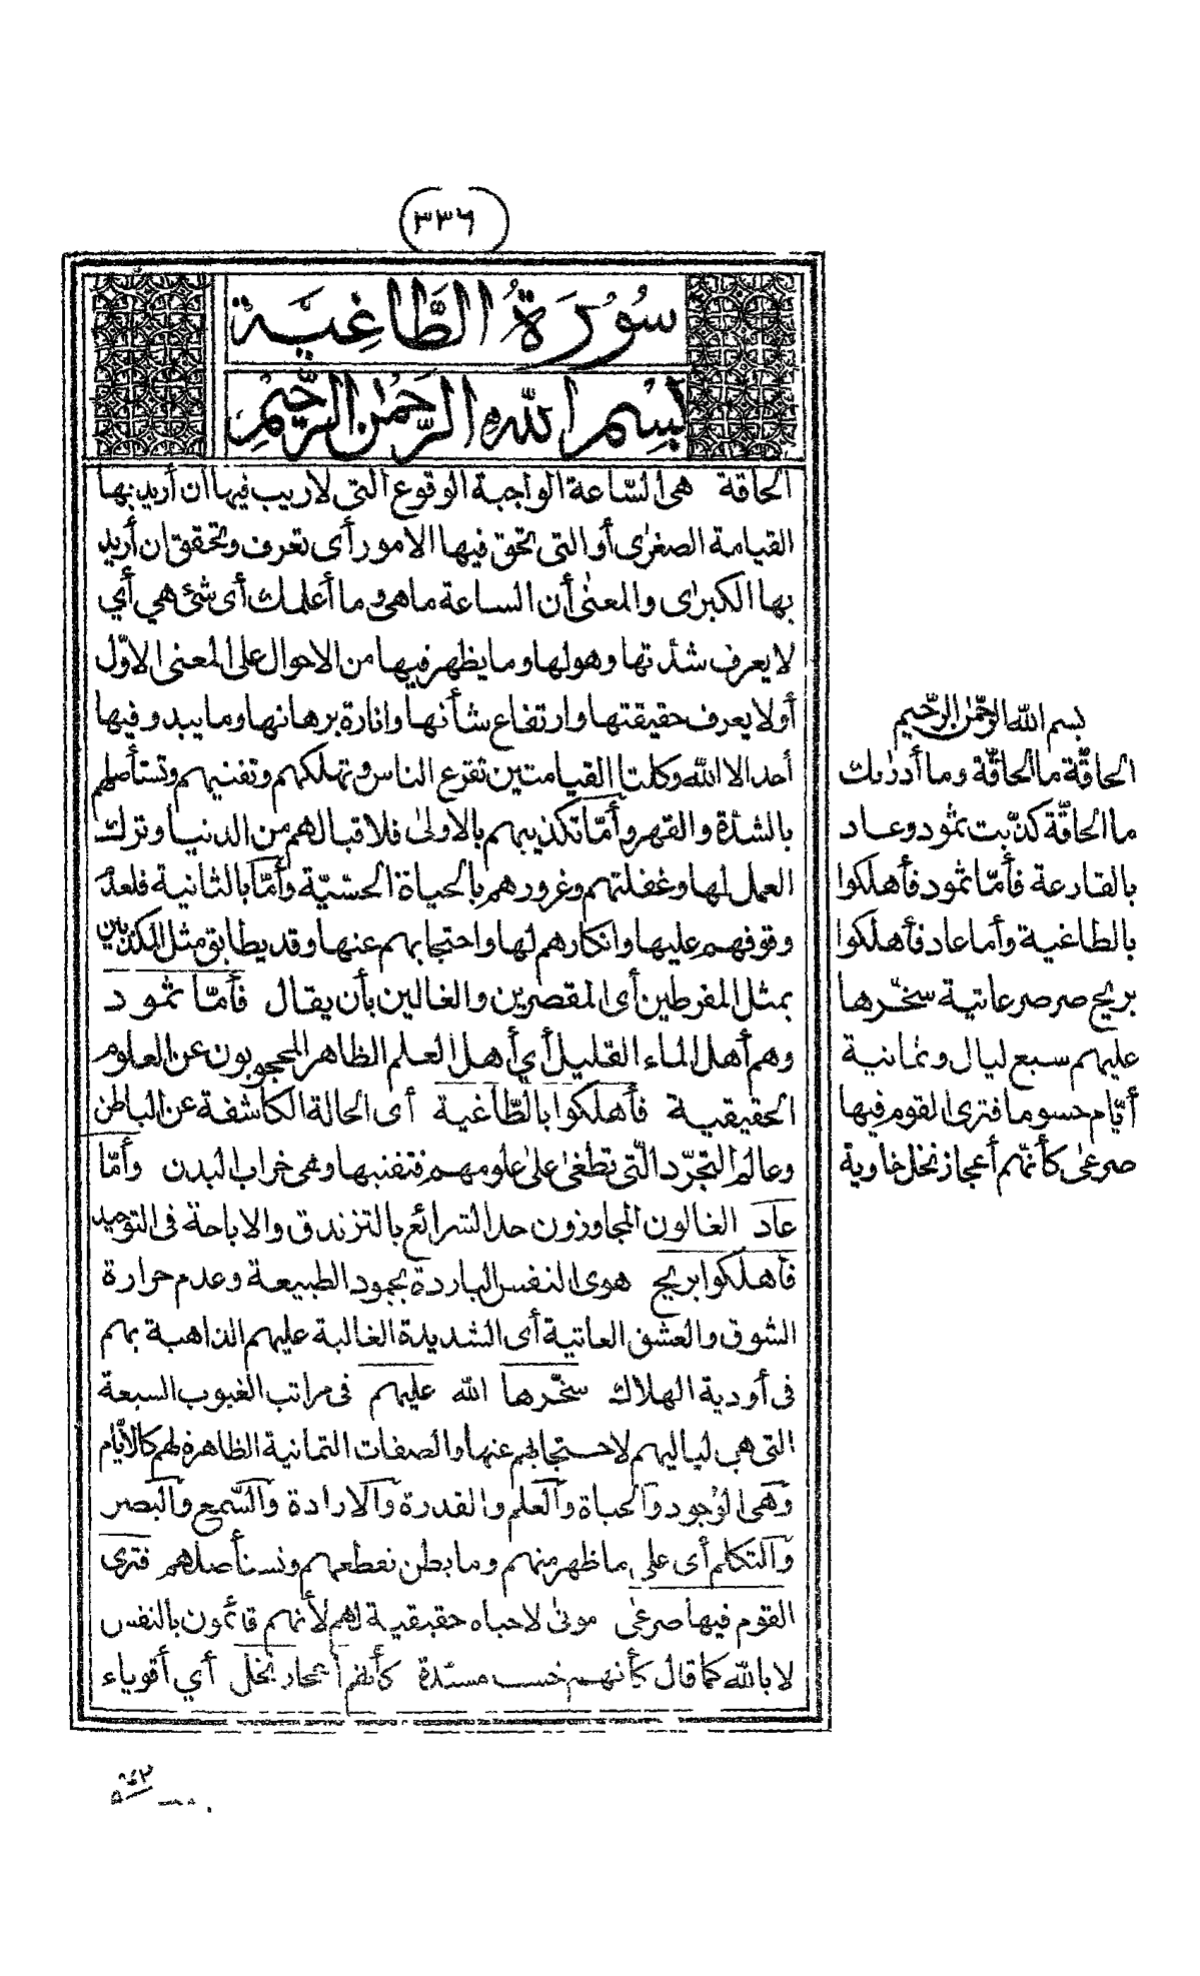 ٣٣٦
سُورَةُ الطَّاغِيَة
بِسْمِ اللهِ الرَّحْمٰنِ الرَّحِيْمِ
الحاقة هى السّاعة الواجبة الوقوع التى لاريب فيها ان أريد بها
القيامة الصغرٰى أو التى تحق فيها الامور أى تعرف وتحقق ان أريد
بها الكبرٰى والمعنٰى أن الساعة ماهى وما أعلمك أى شئ هي أي
لايعرف شدّتها وهولها وما يظهر فيها من الاحوال على المعنى الاوّل
أولايعرف حقيقتها وارتفاع شأنها وانارة برهانها وما يبدو فيها
أحد الا اللّٰه وكلتا القيامتين تقرع الناس وتهلكهم وتفنيهم وتستأصلهم
بالشدّة والقهر وأمّا تكذيبهم بالاولىٰ فلاقبالهم من الدنيا وترك
العمل لها وغفلتهم وغرورهم بالحياة الحسّيّة وأمّا بالثانية فلعدم
وقوفهم عليها وانكارهم لها واحتجابهم عنها وقد يطابق مثل المكذبين
بمثل المفرطين أى المقصرين والغالين بأن يقال فأمّا ثمود
وهم أهل الماء القليل أي أهل العلم الظاهر المحجوبون عن العلوم
الحقيقية فأهلكوا بالطّاغية أى الحالة الكاشفة عن الباطن
وعالم التجرّد الّتى تطغىٰ علىٰ علومهم فتفنيها وهى خراب البدن وأمّا
عاد الغالون المجاوزون حد الشرائع بالتزندق والاباحة فى التوحيد
فأهلكوا بريح هوى النفس الباردة بجمود الطبيعة وعدم حرارة
الشوق والعشق العاتية أى الشديدة الغالبة عليهم الذاهبة بهم
فى أودية الهلاك سخّرها اللّٰه عليهم فى مراتب الغيوب السبعة
التى هى لياليهم لاحتجابهم عنها والصفات الثمانية الظاهرة لهم كالايّام
وهى الوجود والحياة والعلم والقدرة والارادة والسّمع والبصر
والتكلم أى على ماظهر منهم وما بطن نقطعهم ونستأصلهم فترى
القوم فيها صرعىٰ موتىٰ لاحياة حقيقية لهم لأنهم قائمون بالنفس
لا باللّٰه كما قال كأنهم خشب مسنّدة كأنهم أعجاز نخل أي أقوياء
بسم اللّٰه الرّحمٰن الرّحيم
الحاقّة ماالحاقّة وما أدرٰىك
ما الحاقّة كذّبت ثمود وعاد
بالقارعة فأمّا ثمود فأهلكوا
بالطاغية وأما عاد فأهلكوا
بريح صرصر عاتية سخّرها
عليهم سبع ليال وثمانية
أيّام حسوما فترى القوم فيها
صرعىٰ كأنّهم أعجاز نخل خاوية